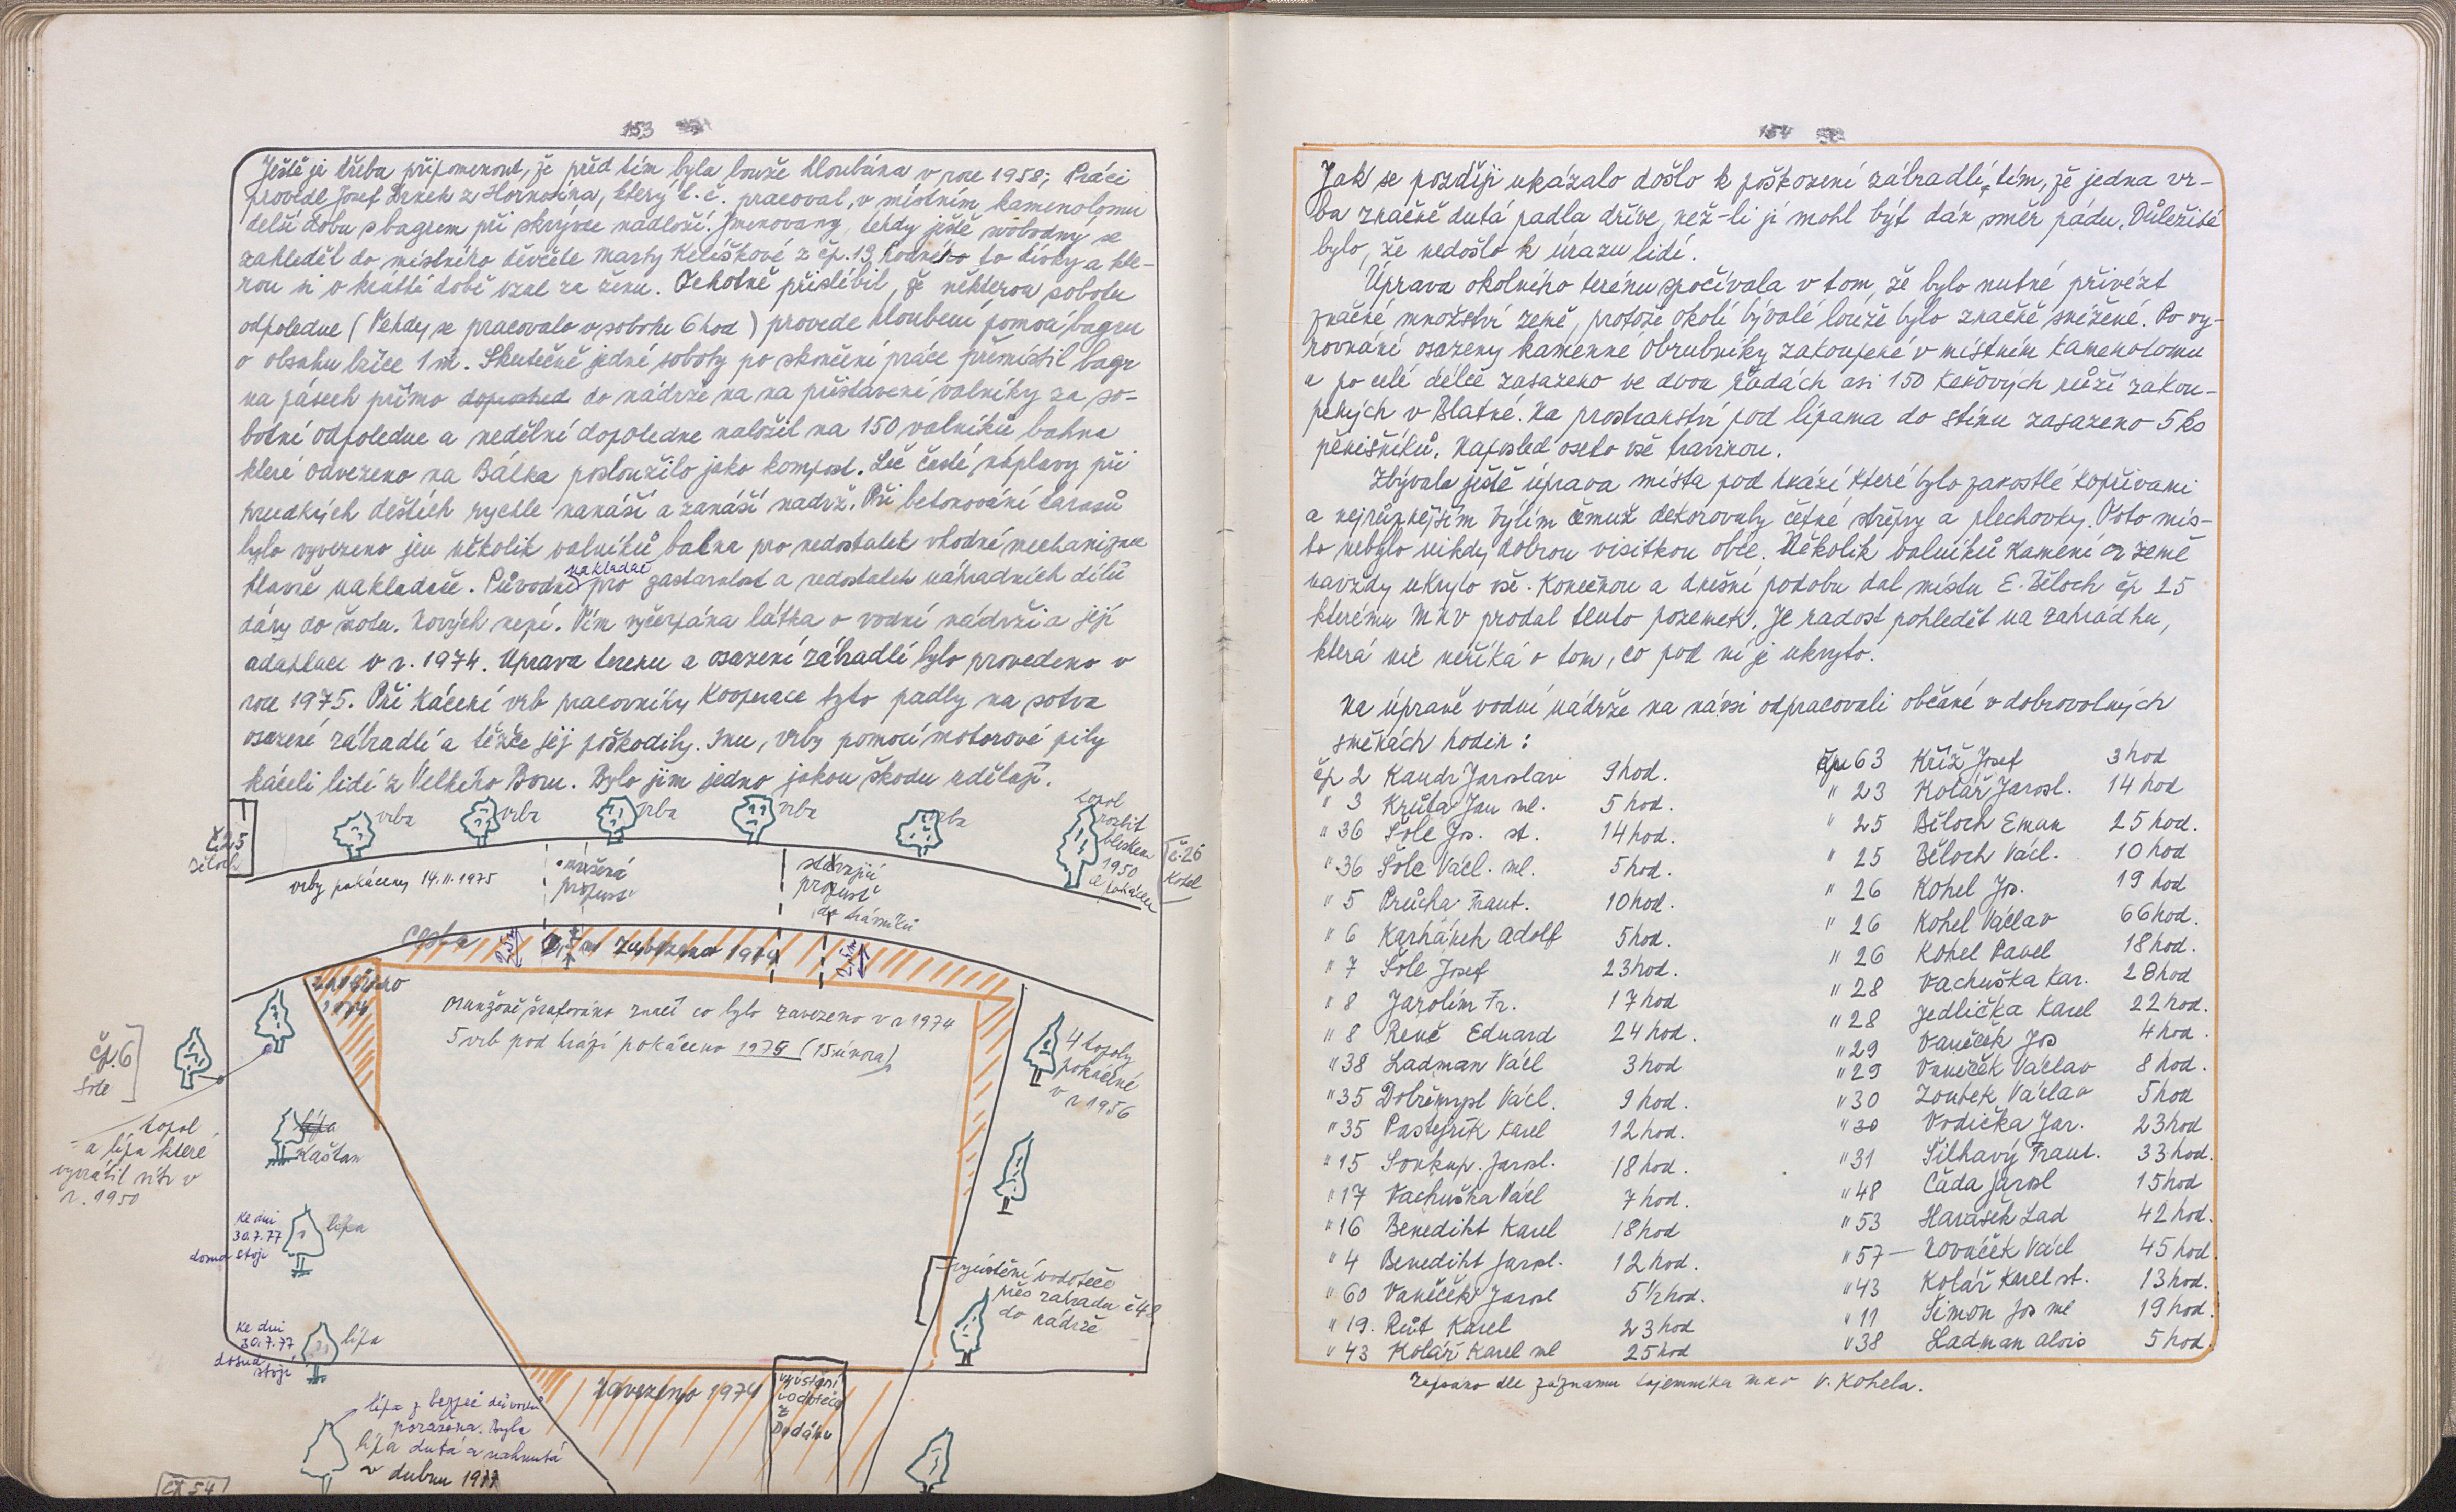 153
Ještě je třeba připomenout, že před tím byla louže hloubána v roce 1958; Práci
provedl Josef Drnek z Hornosína, který t.č. pracoval, v místním kamenolomu
delší dobu s bagrem při skrývce nadloží. Jmenovaný, tehdy ještě svobodný se
zahleděl do místního děvčete Marty Kelíškové z čp. 19, hodného to dívky a kte-
rou si v krátké době vzal za ženu. Ochotně přislíbil, že některou sobotu
odpoledne (Tehdy se pracovalo v sobotu 6 hod) provede hloubení pomocí bagru
o obsahu lžíce 1 m. Skutečně jedné soboty po skončení práce přemístil bagr
na pásech přímo do nádrže na na přistavené valníky za so-
botní odpoledne a nedělní dopoledne naložil na 150 valníků bahna
které odvezeno na Bálka posloužilo jako kompost. Leč časté náplavy při
prudkých deštích rychle nanáší a zanáší nadrž. Při betonování tarasů
bylo vyvezeno jen několik valníků bahna pro nedostatek vhodné mechanizace
hlavně nakladače. Původní nakladač pro zastaralost a nedostatek náhradních dílů
dány do šrotu. Nových není. Tím vyčerpána látka o vodní nádrži a její
adaptaci v r. 1974. Uprava terenu a osazení zábradlí bylo provedeno v
roce 1975. Při kácení vrb pracovníky Kooperace tyto padly na sotva
osazené zábradlí a těžce jej poškodily. Inu, vrby pomocí motorové pily
káceli lidé z Velkého Boru. Bylo jim jedno jakou škodu udělají.
vrba
vrba
vrba
vrba
vrba
topol
rozbit
bleskem
1950
a pokácen
č.25
Běloch
č.26
Kohel
vrby pokáceny 14.II.1975
zrušená
propust
stávající
propust
do trávníků
cesta
2,5m
zavezeno 1974
2,5m
zavezeno
1974
Oranžově šrafováno značí co bylo zavezeno v r 1974
5 vrb pod hrází pokáceno 1975 (15 února)
čp. 6
Šole
4 topoly
pokácené
v r 1956
topol
a lípa které
vyvrátil vítr v
r. 1950
lípa
Kaštan
Ke dni
30.7.77
dosud stojí
lípa
vyústění vodoteče
přes zahradu č 48
do nádrže
Ke dni
30.7.77
dosud
stojí
lípa
zavezeno 1974
vyústění
vodoteče
z
Dodánu
lípa z bezpeč důvodů
poražena. Byla
lípa dutá a nahnutá
v dubnu 1977
čp 54
154
Jak se později ukázalo došlo k poškození zábradlí, tím, že jedna vr-
ba značně dutá padla dříve, než-li jí mohl být dán směr pádu. Důležité
bylo, že nedošlo k úrazu lidí.
Úprava okolního terénu spočívala v tom, že bylo nutné přivézt
značné množství země, protože okolí bývalé louže bylo značně snížené. Po vy-
rovnání osazeny kamenné obrubníky zakoupené v místním kamenolomu
a po celé délce zasazeno ve dvou řadách asi 150 keřových růží zakou-
pených v Blatné. Na prostranství pod lípama do stínu zasazeno 5 ks
pěnišníků. Naposled oseto vše travinou.
Zbývala ještě úprava místa pod hrází které bylo zarostlé kopřivami
a nejrůznějším býlím čemuž dekorovaly četné střepy a plechovky. Toto mís-
to nebylo nikdy dobrou visitkou obce. Několik valníků kamení a země
navždy ukrylo vše. Konečnou a dnešní podobu dal místu E. Běloch čp 25
kterému MNV prodal tento pozemek. Je radost pohledět na zahrádku,
která nic neříká o tom, co pod ní je ukryto.
Na úpravě vodní nádrže na návsi odpracovali občané v dobrovolných
směnách hodin:
čp 2 Kandr Jaroslav 9 hod.
" 3 Krůta Jan ml. 5 hod.
" 36 Šole Jos. st. 14 hod.
" 36 Šole Václ. ml. 5 hod.
" 5 Průcha Frant. 10 hod.
" 6 Karhánek Adolf 5 hod.
" 7 Šole Josef 23 hod.
" 8 Jarolím Fr. 17 hod
" 8 Reně Eduard 24 hod.
" 38 Ladman Václ 3 hod
" 35 Dobřemysl Václ. 9 hod.
" 35 Pastejřík Karel 12 hod.
" 15 Soukup. Jarosl. 18 hod.
" 17 Vachuška Václ 7 hod.
" 16 Benedikt Karel 18 hod
" 4 Benedikt Jarosl. 12 hod.
" 60 Vaněček Jarosl 5 1/2 hod.
" 19. Růt Karel 23 hod
" 43 Kolář Karel ml 25 hod
čp 63 Kříž Josef 3 hod
" 23 Kolář Jarosl. 14 hod
" 25 Běloch Eman 25 hod.
" 25 Běloch Václ. 10 hod
" 26 Kohel Jos. 19 hod
" 26 Kohel Václav 66 hod.
" 26 Kohel Pavel 18 hod.
" 28 Vachuška Kar. 28 hod
" 28 Jedlička Karel 22 hod.
" 29 Vaněček Jos 4 hod.
" 29 Vaněček Václav 8 hod.
" 30 Zoubek Václav 5 hod
" 30 Vodička Jar. 23 hod
" 31 Šilhavý Frant. 33 hod.
" 48 Čada Jarosl 15 hod
" 53 Harásek Lad 42 hod.
" 57 — Nováček Václ 45 hod
" 43 Kolář Karel st. 13 hod.
" 11 Šimon Jos ml 19 hod.
" 38 Ladman Alois 5 hod.
Zapsáno dle záznamu tajemníka MNV V. Kohela.